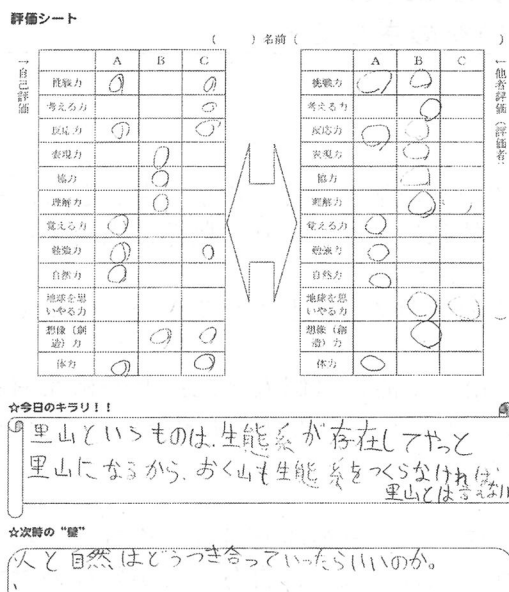 評価シート
（　　　）名前（　　　　　　　　　　　　　　）
【自己評価
A B C
挑戦力
考える力
反応力
表現力
協力
理解力
覚える力
勉強力
自然力
地球を思
いやる力
想像（創
造）力
体力
A B C
挑戦力
考える力
反応力
表現力
協力
理解力
覚える力
勉強力
自然力
地球を思
いやる力
想像（創
造）力
体力
【他者評価（評価者：　　　）
☆今日のキラリ！！
里山というものは、生態系が存在してやっと
里山になるから、おく山も生態系をつくらなければ、
里山とは言えない
☆次時の“壁”
人と自然はどうつき合っていったらいいのか。